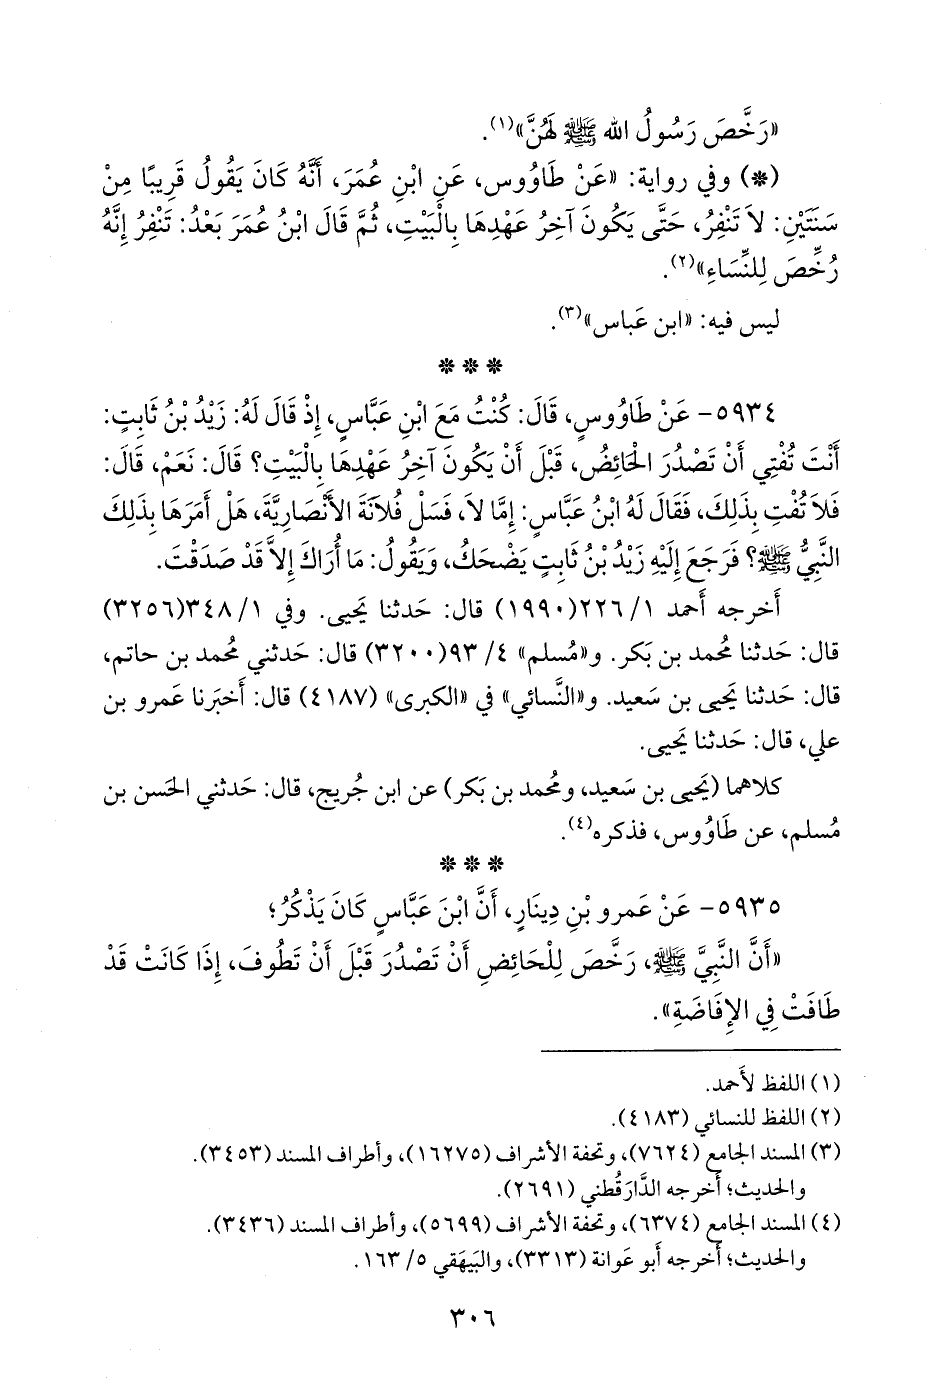 «رَخَّصَ رَسُولُ الله ﷺ لَهُنَّ»(١).
(*) وفي رواية: «عَنْ طَاوُوس، عَنِ ابْنِ عُمَرَ، أَنَّهُ كَانَ يَقُولُ قَرِيبًا مِنْ
سَنَتَيْنِ: لاَ تَنْفِرُ، حَتَّى يَكُونَ آخِرُ عَهْدِهَا بِالْبَيْتِ، ثُمَّ قَالَ ابْنُ عُمَرَ بَعْدُ: تَنْفِرُ إِنَّهُ
رُخِّصَ لِلنِّسَاءِ»(٢).
ليس فيه: «ابن عَباس»(٣).
* * *
٥٩٣٤- عَنْ طَاوُوسٍ، قَالَ: كُنْتُ مَعَ ابْنِ عَبَّاسٍ، إِذْ قَالَ لَهُ: زَيْدُ بْنُ ثَابِتٍ:
أَنْتَ تُفْتِي أَنْ تَصْدُرَ الْحَائِضُ، قَبْلَ أَنْ يَكُونَ آخِرُ عَهْدِهَا بِالْبَيْتِ؟ قَالَ: نَعَمْ، قَالَ:
فَلاَ تُفْتِ بِذَلِكَ، فَقَالَ لَهُ ابْنُ عَبَّاسٍ: إِمَّا لاَ، فَسَلْ فُلاَنَةَ الأَنْصَارِيَّةَ، هَلْ أَمَرَهَا بِذَلِكَ
النَّبِيُّ ﷺ؟ فَرَجَعَ إِلَيْهِ زَيْدُ بْنُ ثَابِتٍ يَضْحَكُ، وَيَقُولُ: مَا أُرَاكَ إِلاَّ قَدْ صَدَقْتَ.
أَخرجه أَحمد ١/ ٢٢٦(١٩٩٠) قال: حَدثنا يَحيى. وفي ١/ ٣٤٨(٣٢٥٦)
قال: حَدثنا مُحمد بن بَكر. و«مُسلم» ٤/ ٩٣(٣٢٠٠) قال: حَدثني مُحمد بن حاتم،
قال: حَدثنا يَحيى بن سَعيد. و«النَّسائي» في «الكبرى» (٤١٨٧) قال: أَخبَرنا عَمرو بن
علي، قال: حَدثنا يَحيى.
كلاهما (يَحيى بن سَعيد، ومُحمد بن بَكر) عن ابن جُريج، قال: حَدثني الحَسن بن
مُسلم، عن طَاوُوس، فذكره(٤).
* * *
٥٩٣٥- عَنْ عَمرِو بْنِ دِينَارٍ، أَنَّ ابْنَ عَبَّاسٍ كَانَ يَذْكُرُ؛
«أَنَّ النَّبِيَّ ﷺ، رَخَّصَ لِلْحَائِضِ أَنْ تَصْدُرَ قَبْلَ أَنْ تَطُوفَ، إِذَا كَانَتْ قَدْ
طَافَتْ فِي الإِفَاضَةِ».
(١) اللفظ لأَحمد.
(٢) اللفظ للنسائي (٤١٨٣).
(٣) المسند الجامع (٧٦٢٤)، وتحفة الأشراف (١٦٢٧٥)، وأطراف المسند (٣٤٥٣).
والحديث؛ أخرجه الدَّارَقُطني (٢٦٩١).
(٤) المسند الجامع (٦٣٧٤)، وتحفة الأشراف (٥٦٩٩)، وأطراف المسند (٣٤٣٦).
والحديث؛ أخرجه أبو عَوانة (٣٣١٣)، والبَيهَقي ٥/ ١٦٣.
٣٠٦